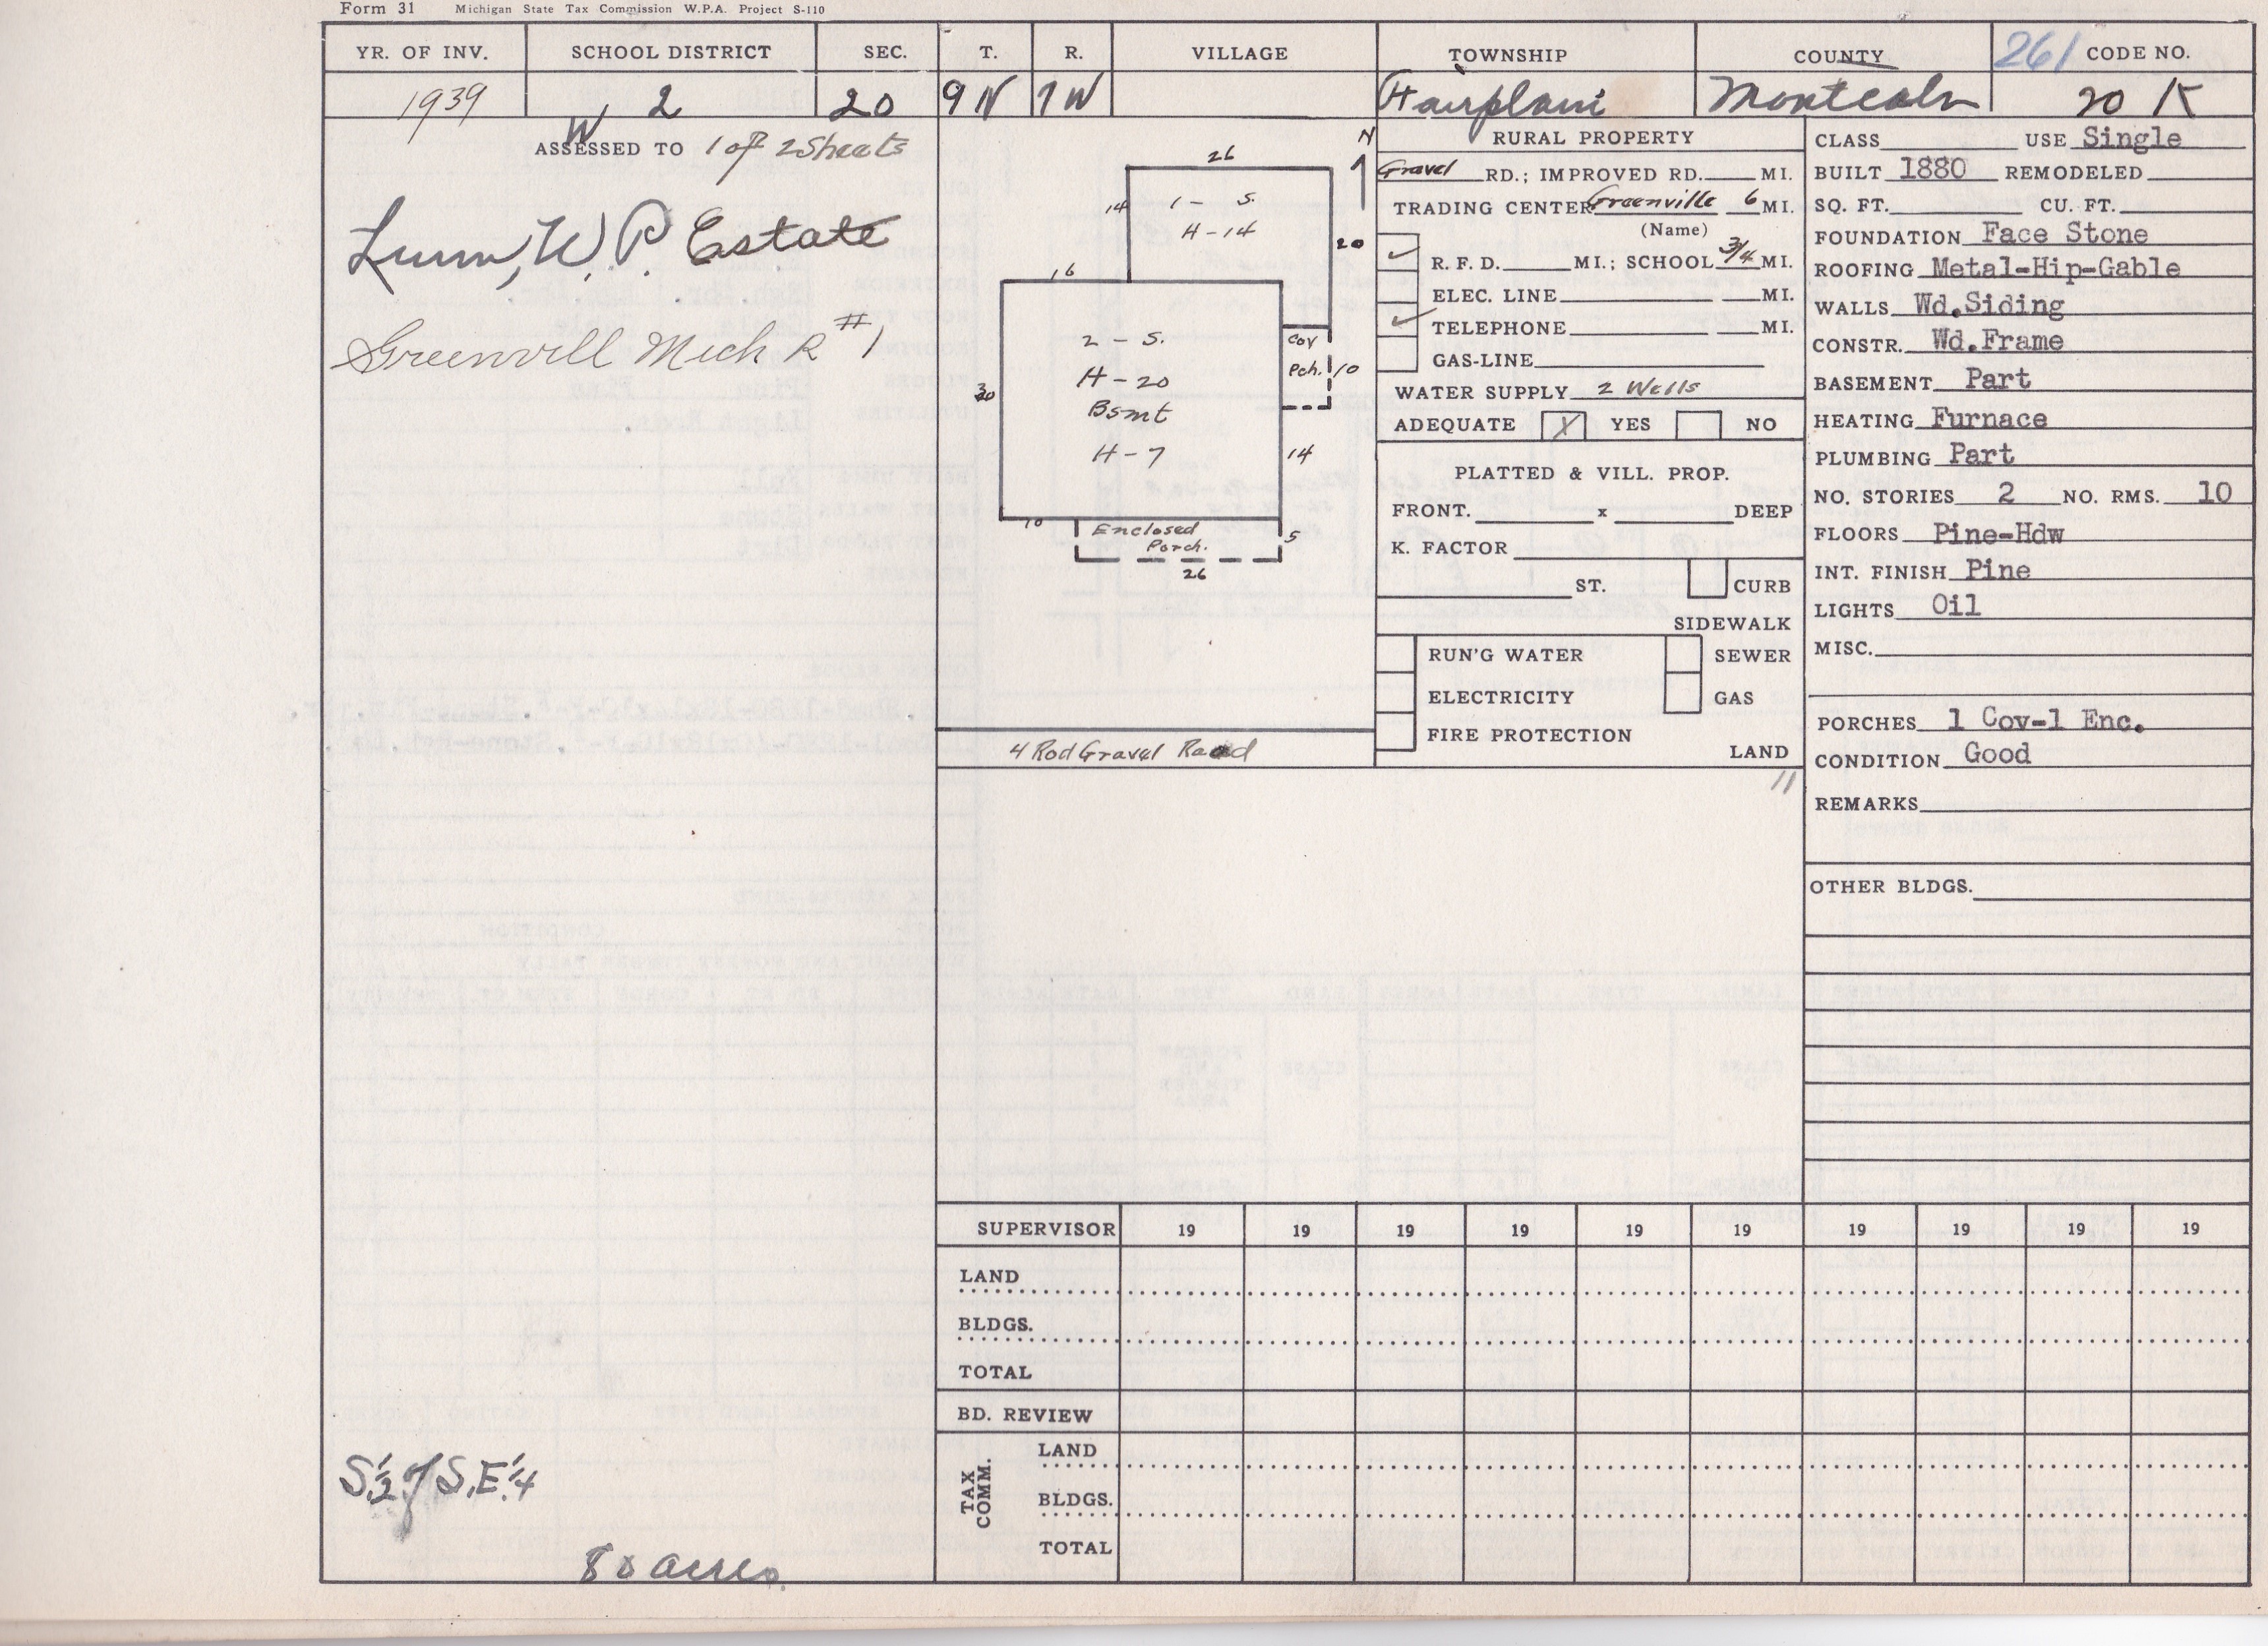 Form 31 Michigan State Tax Commission W.P.A. Project S-110
YR. OF INV. SCHOOL DISTRICT SEC. T. R. VILLAGE TOWNSHIP COUNTY 261 CODE NO.
1939 W 2 20 9N 7W Fairplain Montcalm 20 K
ASSESSED TO 1 of 2 Sheets
W.P. Estate
Greenvill Mich R#1
S.1/2 of S.E.1/4
80 acres.
N
26
14
1 - S.
H-14
20
16
2 - S.
H-20
Bsmt
H-7
30
Cov
Pch.
10
14
10
Enclosed
Porch.
5
26
4 Rod Gravel Road
RURAL PROPERTY
Gravel RD.; IMPROVED RD. MI.
TRADING CENTER Greenville 6 MI.
(Name)
✓ R. F. D. MI.; SCHOOL 3/4 MI.
ELEC. LINE MI.
✓ TELEPHONE MI.
GAS-LINE
WATER SUPPLY 2 Wells
ADEQUATE X YES NO
PLATTED & VILL. PROP.
FRONT. x DEEP
K. FACTOR
ST. CURB
SIDEWALK
RUN'G WATER SEWER
ELECTRICITY GAS
FIRE PROTECTION
LAND
11
CLASS USE Single
BUILT 1880 REMODELED
SQ. FT. CU. FT.
FOUNDATION Face Stone
ROOFING Metal-Hip-Gable
WALLS Wd.Siding
CONSTR. Wd.Frame
BASEMENT Part
HEATING Furnace
PLUMBING Part
NO. STORIES 2 NO. RMS. 10
FLOORS Pine-Hdw
INT. FINISH Pine
LIGHTS Oil
MISC.
PORCHES 1 Cov-1 Enc.
CONDITION Good
REMARKS
OTHER BLDGS.
SUPERVISOR 19 19 19 19 19 19 19 19 19 19
LAND
BLDGS.
TOTAL
BD. REVIEW
TAX COMM.
LAND
BLDGS.
TOTAL